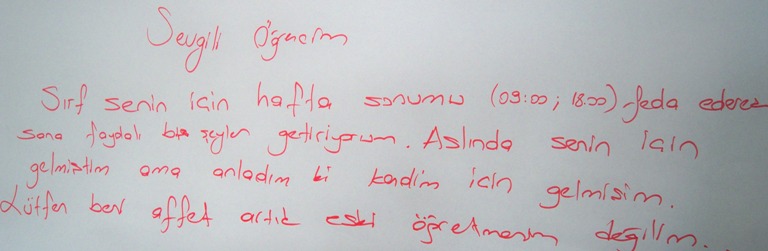 Sevgili Öğrencim
Sırf senin için hafta sonumu (09:00; 18:00) feda ederek
sana faydalı bir şeyler getiriyorum. Aslında senin için
gelmiştim ama anladım ki kendim için gelmişim.
Lütfen beni affet artık eski öğretmenin değilim..